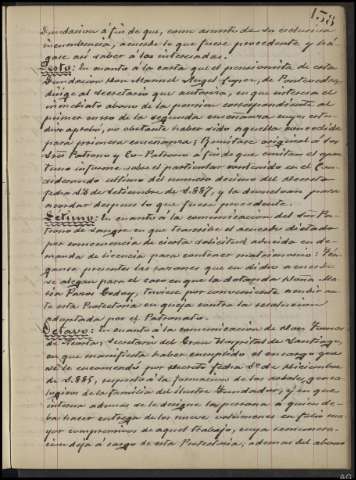 158
Fundacion á fin de que, como asunto de su exclusiva
incumbencia, acuerde lo que fuere procedente y há-
gase así saber á los interesados.
Sesto: En cuanto á la carta que el pensionista de esta
Fundacion Don Manuel Angel, de Pontevedra,
dirige al Secretario que actuaria, en que interesa el
inmediato abono de la pension correspondiente al
primer curso de la segunda enseñanza cuyo estu-
dio aprobó, no obstante haber sido aquella concedida
para primera enseñanza; Remitase original á los
Sres Patrono y Co-Patrono á fin de que emitan el opor-
tuno informe sobre el particular contenido en el
considerando setimo del numero decimo del decreto
fecha 26 de Setiembre de 1887, y lo devuelvan para
acordar despues lo que fuere procedente.
Setimo: En cuanto á la comunicacion del Sor Pa-
trono de Sangre en que transcribe el acuerdo dictado
por consecuencia de cierta solicitud aducida en de-
manda de licencia para contraer matrimonio: Tén-
ganse presentes las razones que en dicho acuerdo
se alegan para el caso en que la dotanda Doña Ma-
ria Pazos Goday, tuviese por conveniente acudir á
esta Protectoria en queja contra la resolucion
adoptada por el Patronato.
Octavo: En cuanto á la comunicacion de Don
Secretario del Gran Hospital de Santiago,
en que manifiesta haber cumplido el encargo que
se le encomendó por decreto fecha de Diciembre
de 1885, respecto á la formacion de los arboles genea-
logicos de la familia del ilustre Fundador, y en que
interesa ademas se le designe la persona á quien de-
ba hacer entrega de los nueve volúmenes en folio ma-
yor comprensivos de aquel trabajo, cuya remunera-
cion deja á cargo de esta Protectoria, ademas del abono